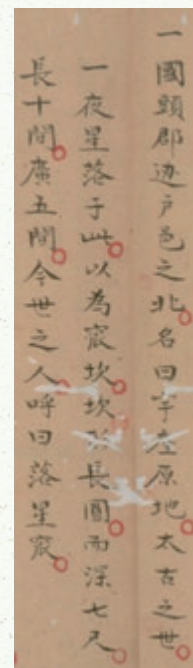 一國頭郡辺戸邑之北名曰宇座原地太古之世
一夜星落于此以為窽坎坎形長圓而深七尺
長十間廣五間今世之人呼曰落星窽